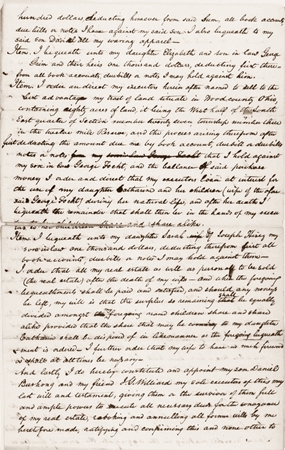 hundred dollars deducting however from said sum, all book accounts
due bills or notes I have against my said son. I also bequeath to my
said son Daniel all my wearing apparel—
Item, I bequeath unto my daughter Elizabeth and son in law George
Shein and their heirs one thousand dollars, deducting first therefrom
from all book accounts, due bills or notes I may hold against them.
Item I order and direct my executors herein after named to sell to the
best advantage my tract of land situate in Wood county Ohio
containing eighty acres of land, it being the West half of the
East quarter of Section number twenty seven township number three
in the twelve mile Reserve, and the process arising therefrom after
first deducting the amount due me by book account, due bill or due bills
notes or note that I hold against
my son in law George Yocht, and the ballance of said purchase
money I order and direct that my executors loan at interest for
the use of my daughter Catharine and her children (wife of the afore
said George Yocht) during her natural life, and after her death I
bequeath the remainder that shall then be in the hands of my execu
tors to her children share and share alike.
Item I bequeath unto my daughter Sarah wife of Joseph King my
son in law one thousand dollars, deducting therefrom first all
book accounts, due bills or notes I may hold against them—
I order that all my real estate as well as personal to be sold
(the real estate) after the death of my wife — and all the foregoing
bequeathments shall be paid and satisfied, and should any surplus
be left, my will is that the surplus so remaining shall be equally
divided amongst the foregoing named children share and share
alike provided that the share that may be coming to my daughter
Catharine shall be disposed of in like manner as the foregoing bequeath
ment is advised. I further order that my wife to have as much firewood
as at all times be necessary.
And lastly, I do hereby constitute and appoint my son Daniel
Bushong and my friend J. S. Willard my sole executors of this my
last will and testament, giving them or the survivor of them full
and ample powers to execute all necessary deed for the conveyance
of my real estate, revoking and annulling all former wills by me
heretofore made, ratifying and confirming this and none other to